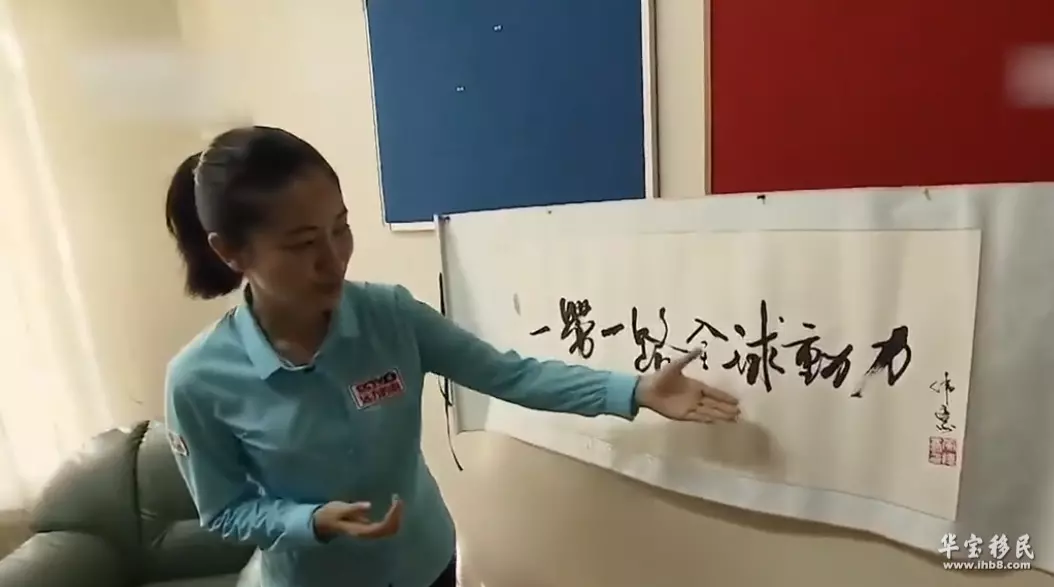 一帶一路全球動力
CCTV4
华宝移民
www.ihb8.com